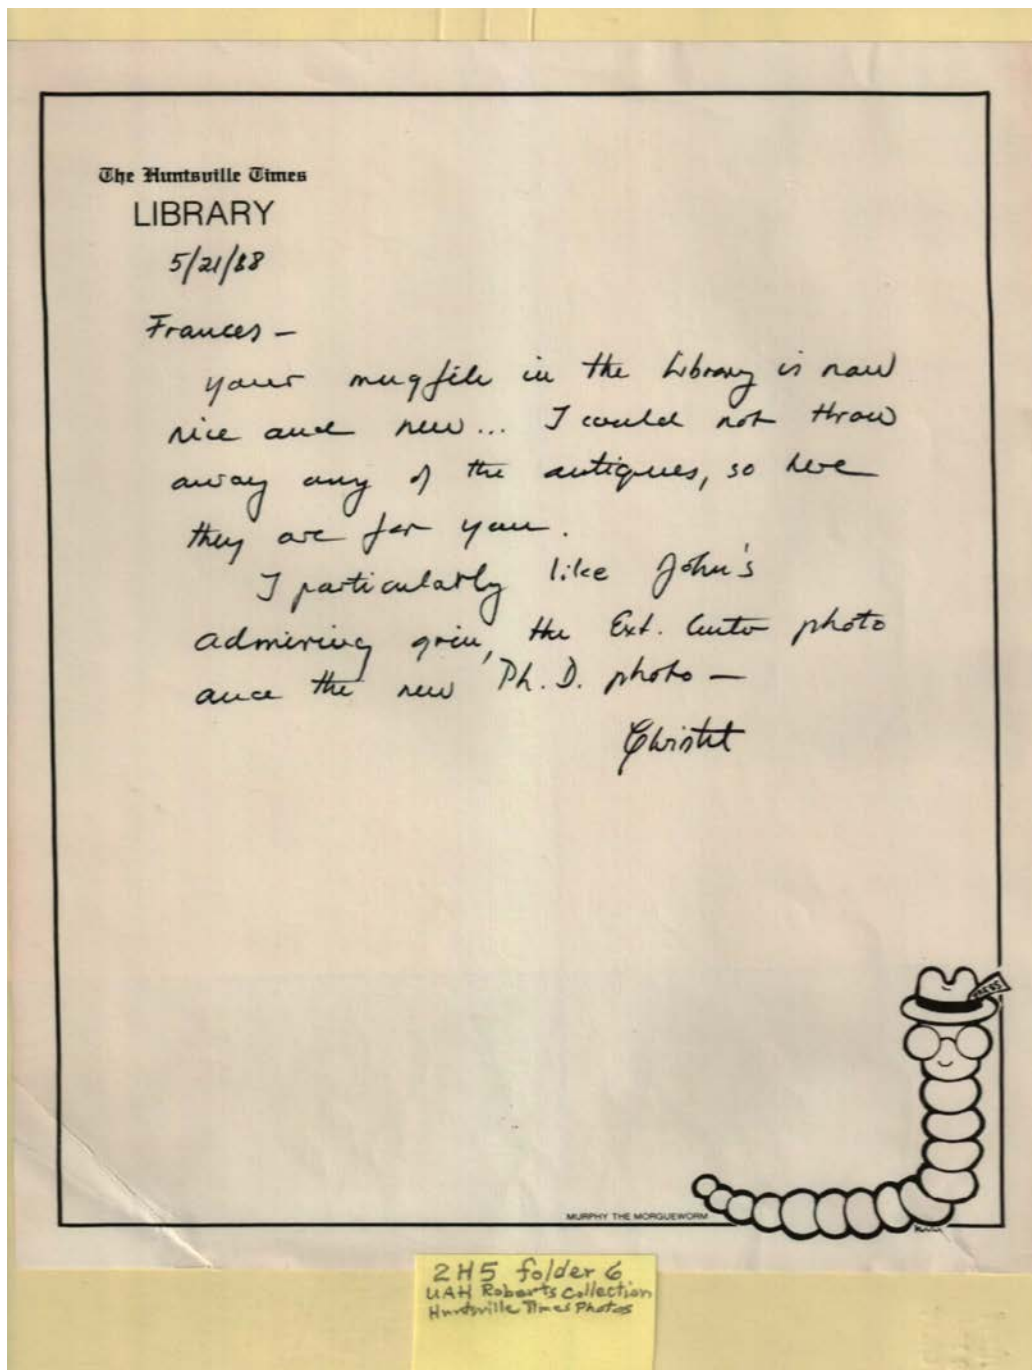 The Huntsville Times
LIBRARY
5/21/88
Frances -
your mugfile in the Library is now
nice and new... I could not throw
away any of the antiques, so here
they are for you.
I particularly like John's
admiring grin, the Ext. Cente photo
and the new Ph. D. photo -
Christel
PRESS
MURPHY THE MORGUEWORM
2H5 folder 6
UAH Roberts Collection
Huntsville Times Photos